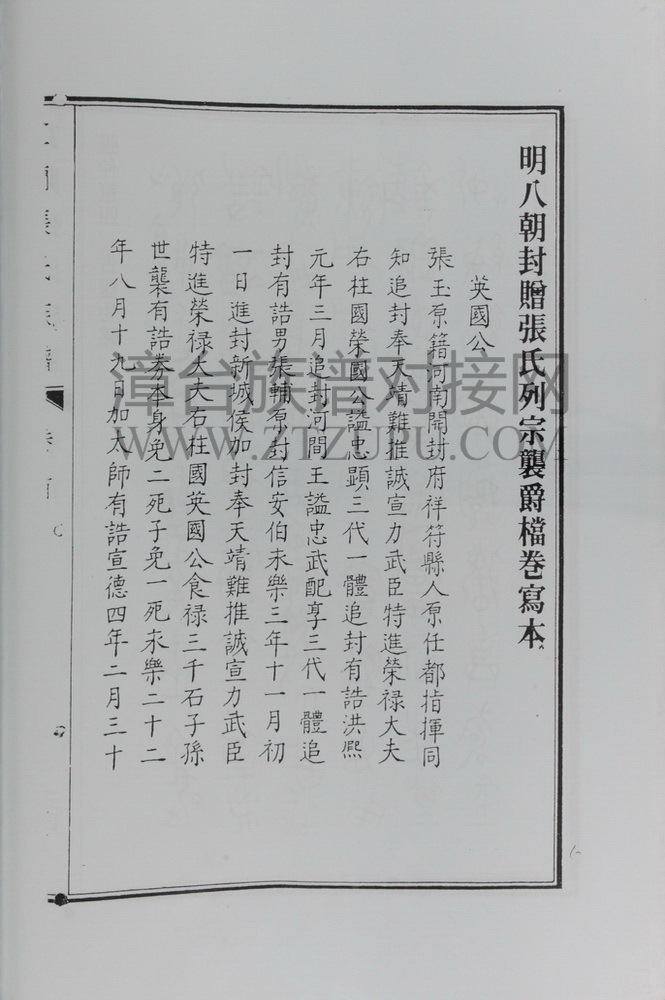 明八朝封贈張氏列宗襲爵檔卷寫本
英國公
張玉原籍河南開封府祥符縣人原任都指揮同
知追封奉天靖難推誠宣力武臣特進榮禄大夫
右柱國榮國公謚忠顯三代一體追封有誥洪熈
元年三月追封河間王謚忠武配享三代一體追
封有誥男張輔原封信安伯永樂三年十一月初
一日進封新城侯加封奉天靖難推誠宣力武臣
特進榮禄大夫右柱國英國公食禄三千石子孫
世襲有誥券本身免二死子免一死永樂二十二
年八月十九日加太師有誥宣德四年二月三十
漳台族谱对接网
WWW.ZTZUPU.COM